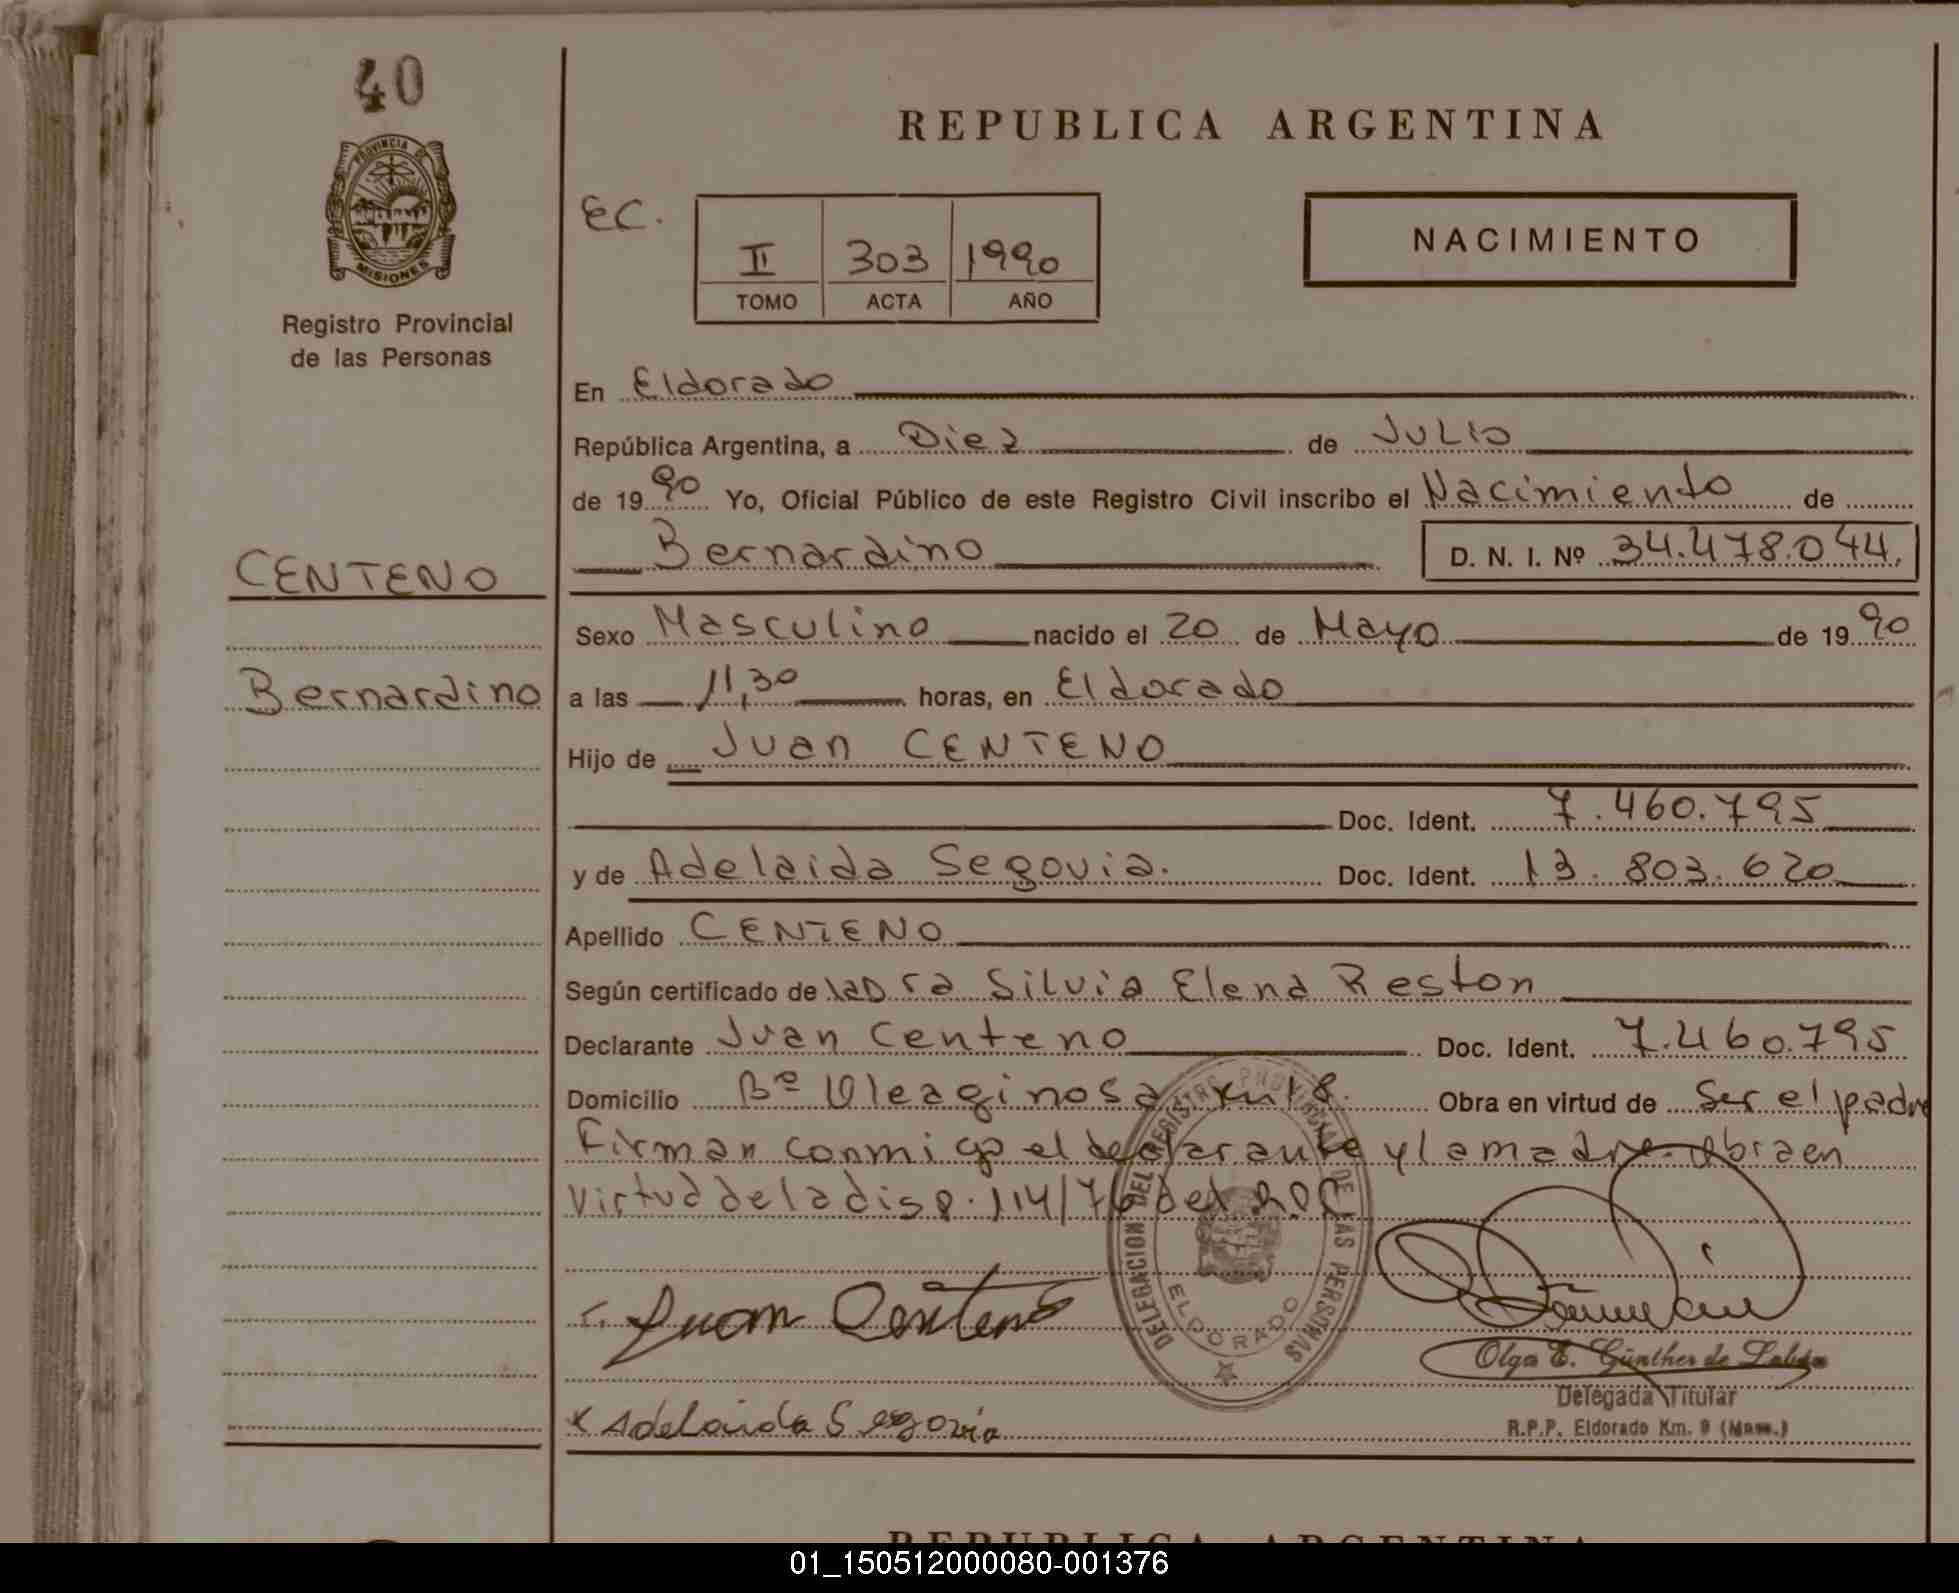 40
PROVINCIA DE
MISIONES
Registro Provincial
de las Personas
CENTENO
Bernardino
REPUBLICA ARGENTINA
EC.
II 303 1990
TOMO ACTA AÑO
NACIMIENTO
En Eldorado
República Argentina, a Diez de JULIO
de 1990 Yo, Oficial Público de este Registro Civil inscribo el Nacimiento de
Bernardino D. N. I. Nº 34.478.044.
Sexo Masculino nacido el 20 de Mayo de 1990
a las 11,30 horas, en Eldorado
Hijo de Juan CENTENO
Doc. Ident. 7.460.795
y de Adelaida Segovia. Doc. Ident. 13.803.620
Apellido CENTENO
Según certificado de la Dra Silvia Elena Reston
Declarante Juan Centeno Doc. Ident. 7.460.795
Domicilio Bº Oleaginosa km 8. Obra en virtud de Ser el padre
Firman conmigo el declarante y la madre. Obra en
virtud de la disp. 114/76 del R.P.C
DELEGACION DEL REGISTRO PROVINCIAL DE LAS PERSONAS
ELDORADO
Juan Centeno
Olga E. Günther de
Delegada Titular
R.P.P. Eldorado Km. 9 (Mnes.)
x Adelaida Segovia
REPUBLICA ARGENTINA
01_150512000080-001376